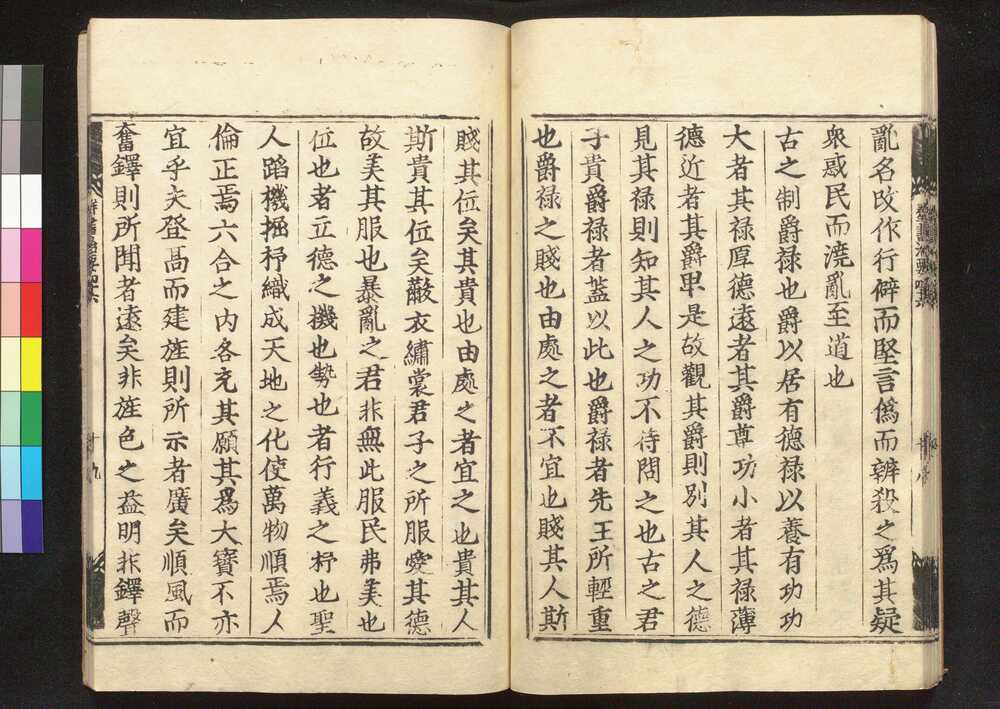 亂名改作行僻而堅言僞而辨殺之爲其疑
衆惑民而澆亂至道也
古之制爵禄也爵以居有德禄以養有功功
大者其禄厚德遠者其爵尊功小者其禄薄
德近者其爵卑是故觀其爵則别其人之德
見其禄則知其人之功不待問之也古之君
子貴爵禄者盖以此也爵禄者先王所輕重
也爵禄之賤也由處之者不宜也賤其人斯
賤其位矣其貴也由處之者宜之也貴其人
斯貴其位矣黻衣繡裳君子之所服愛其德
故美其服也暴亂之君非無此服民弗美也
位也者立德之機也勢也者行義之杼也聖
人蹈機握杼織成天地之化使萬物順焉人
倫正焉六合之内各充其願其爲大寶不亦
宜乎夫登高而建旌則所示者廣矣順風而
奮鐸則所聞者遠矣非旌色之益明非鐸聲